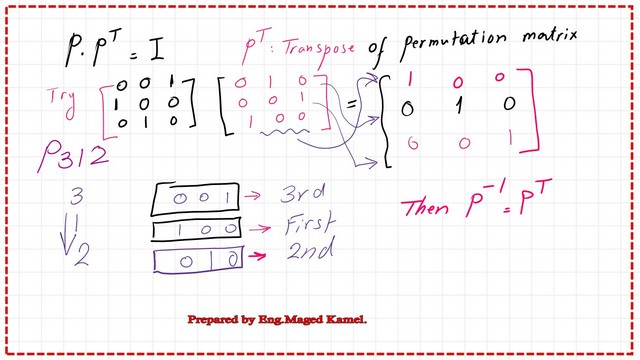 P. Pᵀ = I
Pᵀ: Transpose of permutation matrix
Try [0 0 1 [0 1 0 = [1 0 0
1 0 0 0 0 1 0 1 0
0 1 0] 1 0 0] 0 0 1]
P312
3 0 0 1 → 3rd
1 1 0 0 → First
2 0 1 0 → 2nd
Then P⁻¹ = Pᵀ
Prepared by Eng.Maged Kamel.